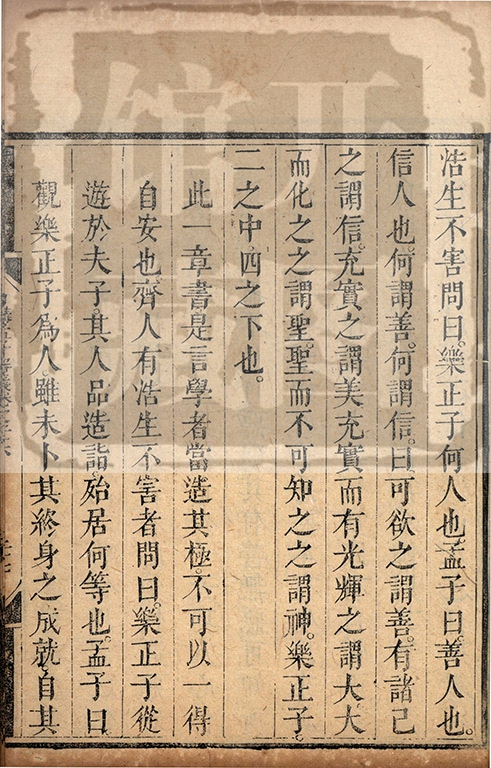 浩生不害問曰。樂正子何人也。孟子曰。善人也。
信人也。何謂善。何謂信。曰。可欲之謂善。有諸己
之謂信。充實之謂美。充實而有光輝之謂大。大
而化之之謂聖。聖而不可知之之謂神。樂正子。
二之中。四之下也。
此一章書是言學者當造其極。不可以一得
自安也。齊人有浩生不害者問曰。樂正子從
遊於夫子。其人品造詣。殆居何等也。孟子曰
觀樂正子為人。雖未卜其終身之成就。自其